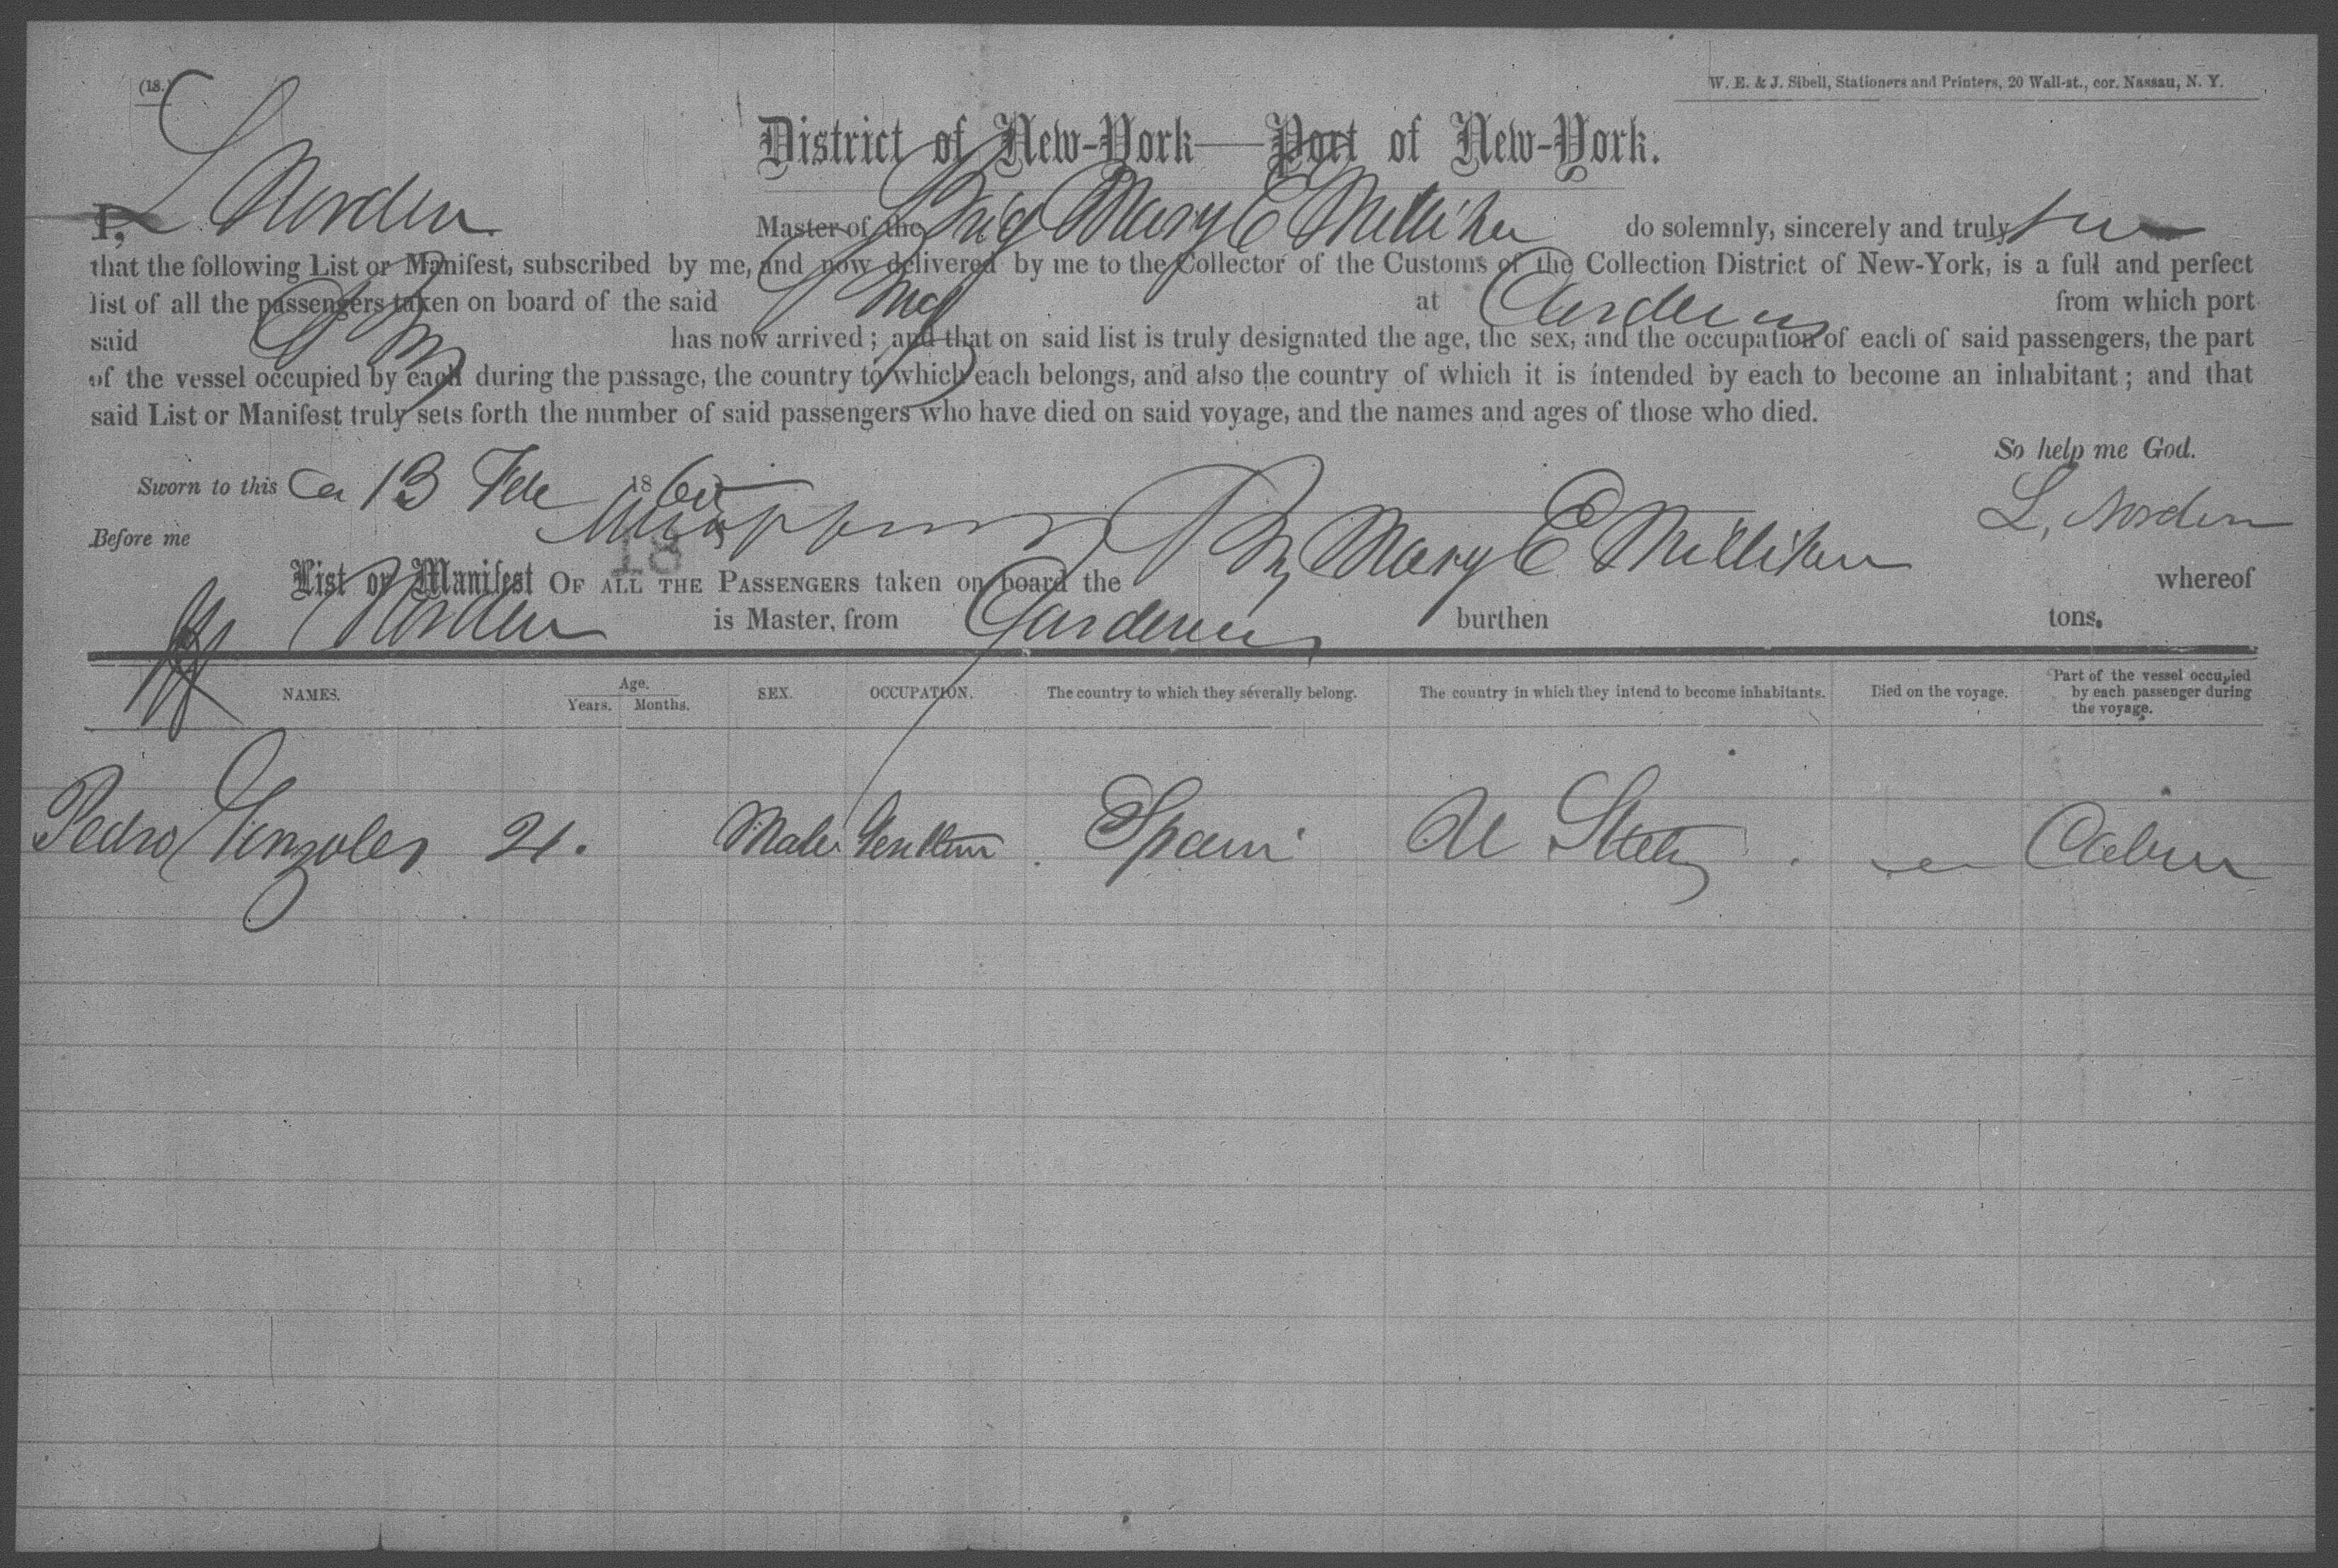 (18.)
W. E. & J. Sibell, Stationers and Printers, 20 Wall-st., cor. Nassau, N. Y.
District of New-York—Port of New-York.
I, L Norden Master of the Brig Mary E Milliken do solemnly, sincerely and truly
that the following List or Manifest, subscribed by me, and now delivered by me to the Collector of the Customs of the Collection District of New-York, is a full and perfect
list of all the passengers taken on board of the said Brig at Cardenas from which port
said Brig has now arrived; and that on said list is truly designated the age, the sex, and the occupation of each of said passengers, the part
of the vessel occupied by each during the passage, the country to which each belongs, and also the country of which it is intended by each to become an inhabitant; and that
said List or Manifest truly sets forth the number of said passengers who have died on said voyage, and the names and ages of those who died.
So help me God.
Sworn to this 13 Feb 186
L. Norden
Before me
18
List or Manifest OF ALL THE PASSENGERS taken on board the Brig Mary E Milliken whereof
Norden is Master, from Cardenas burthen tons.
NAMES. Age. Years. Months. SEX. OCCUPATION. The country to which they severally belong. The country in which they intend to become inhabitants. Died on the voyage. Part of the vessel occupied by each passenger during the voyage.
Pedro Gonzoles 21. Male Gentleman Spain U States Cabin